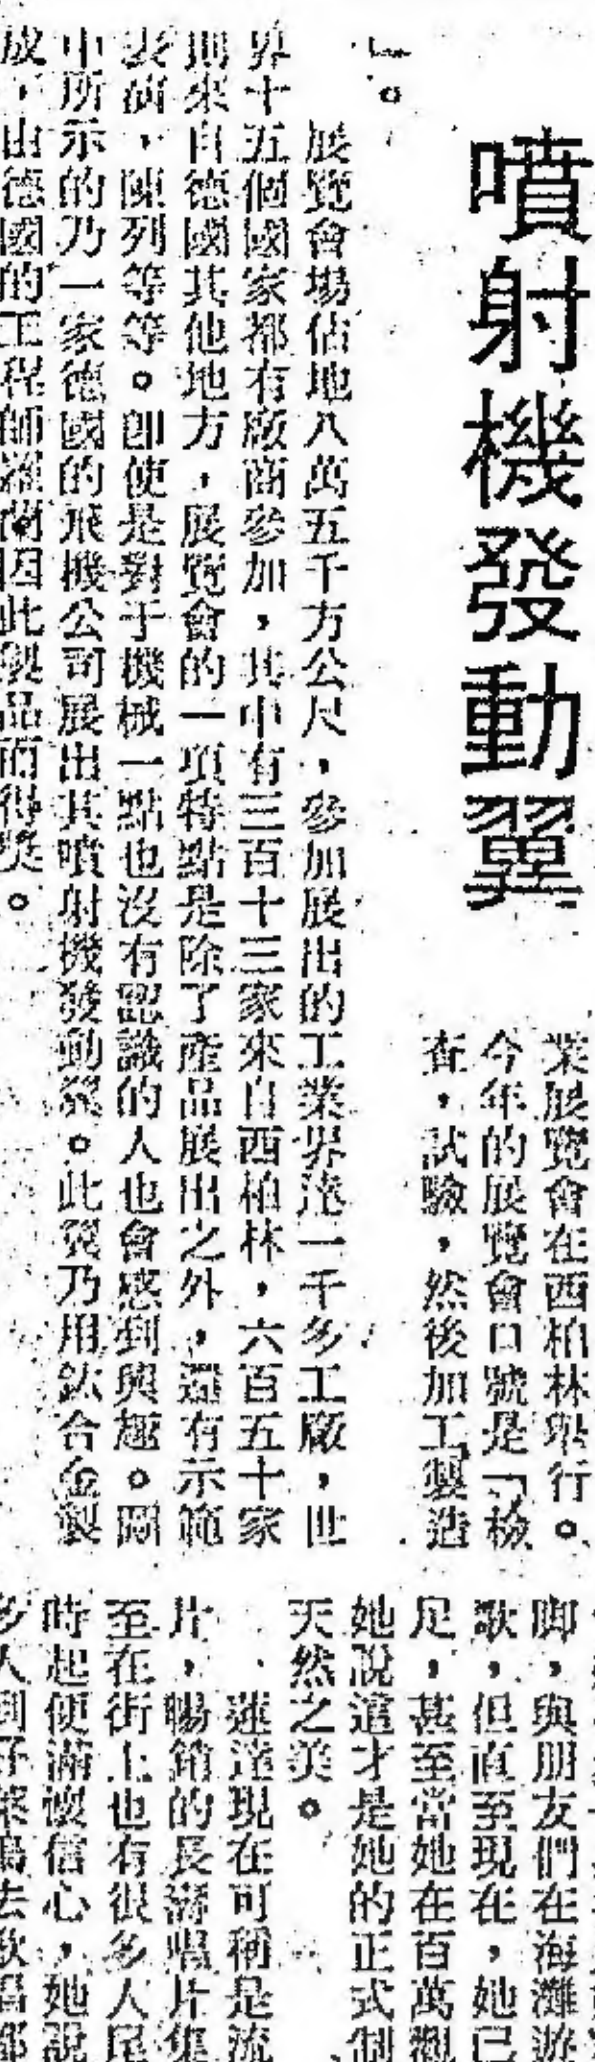 噴射機發動翼
業展覽會在西柏林舉行。
今年的展覽會口號是「檢
查,試驗,然後加工製造
」。
展覽會場佔地八萬五千方公尺,參加展出的工業界達一千多工廠,世
界十五個國家都有廠商參加,其中有三百十三家來自西柏林,六百五十家
則來自德國其他地方,展覽會的一項特點是除了產品展出之外,還有示範
表演,陳列等等。即使是對于機械一點也沒有認識的人也會感到興趣。圖
中所示的乃一家德國的飛機公司展出其噴射機發動翼。此翼乃用鈦合金製
成,由德國的工程師羅蘭因此製品而得獎。
脚,與朋友們在海灘游
歌,但直至現在,她已
足,甚至當她在百萬觀
她說這才是她的正式制
天然之美。
蓮達現在可稱是流
片,暢銷的長壽唱片集
至在街上也有很多人尾
時起便滿懷信心,她說
多人到 去歌唱都